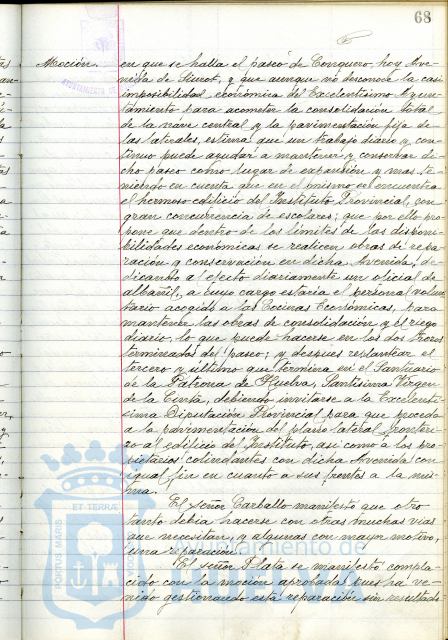 68
Moción.
en que se halla el paseo de Conquero, hoy Ave-
nida de Siurot, y que aunque no desconoce la casi
imposibilidad económica del Excelentísimo Ayun-
tamiento para acometer la consolidación total
de la nave central y la pavimentación fija de
las laterales, estima que un trabajo diario y con-
tinuo puede ayudar a mantener y conservar di-
cho paseo como lugar de expansión y mas, te-
niendo en cuenta que en el mismo se encuentra
el hermoso edificio del Instituto Provincial, con
gran concurrencia de escolares; que por ello pro-
pone que dentro de los límites de las disponi-
bilidades económicas se realicen obras de repa-
ración y conservación en dicha Avenida, de-
dicando al efecto diariamente un oficial de
albañil, a cuyo cargo estaria el personal volun-
tario acogido a las Cocinas Económicas, para
mantener las obras de consolidación y el riego
diario, lo que puede hacerse en los dos trozos
terminados del paseo, y despues replantear el
tercero y último que termina en el Santuario
de la Patrona de Huelva, Santísima Virgen
de la Cinta, debiendo invitarse a la Excelentí-
sima Diputación Provincial para que proceda
a la pavimentación del plano lateral fronteri-
zo al edificio del Instituto, asi como a los pro-
pietarios colindantes con dicha Avenida con
igual fin en cuanto a sus frentes a la mis-
ma.
El señor Carballo manifestó que otro
tanto debia hacerse con otras muchas vias
que necesitan, y algunas con mayor motivo,
una reparación.
El señor Plata se manifestó compla-
cido con la moción aprobada pues ha ve-
nido gestionando esta reparación sin resultado
Ayuntamiento de
PORTUS MARIS
ET TERRAE
CUSTODIA